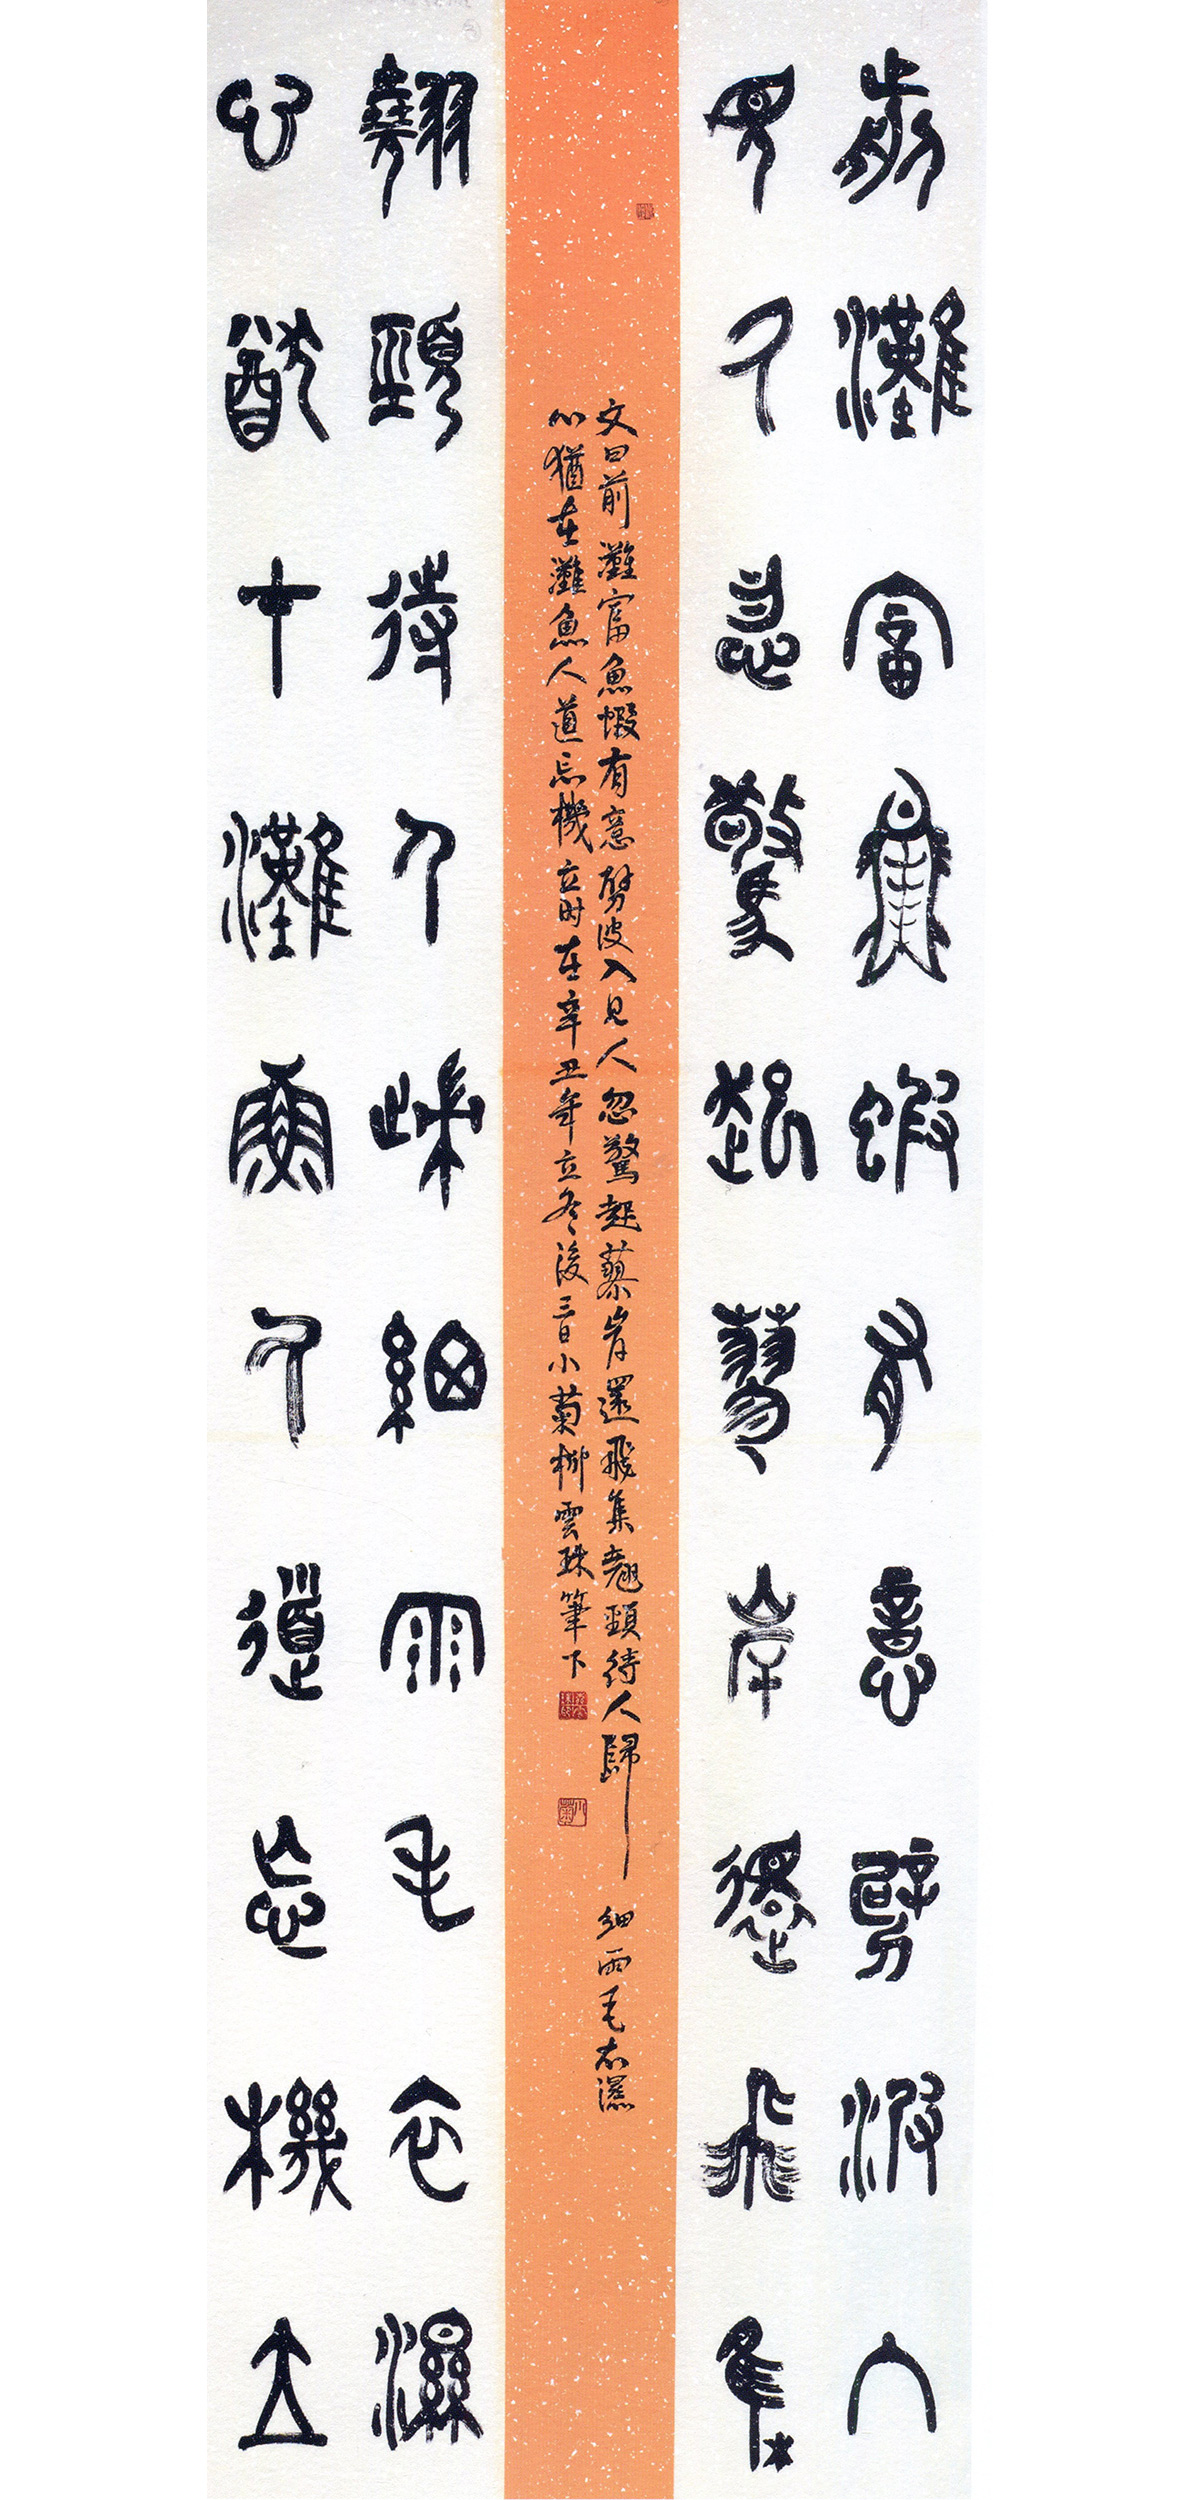 前灘富魚蝦有意劈波入
見人忽驚起蓼岸還飛集
文曰前灘富魚蝦有意劈波入見人忽驚起蓼岸還飛集翹頸待人歸 細雨毛衣濕
心猶在灘魚人道忘機立时在辛丑年立冬後三日小菊柳雲珠筆下
翹頸待人歸細雨毛衣濕
心猶在灘魚人道忘機立